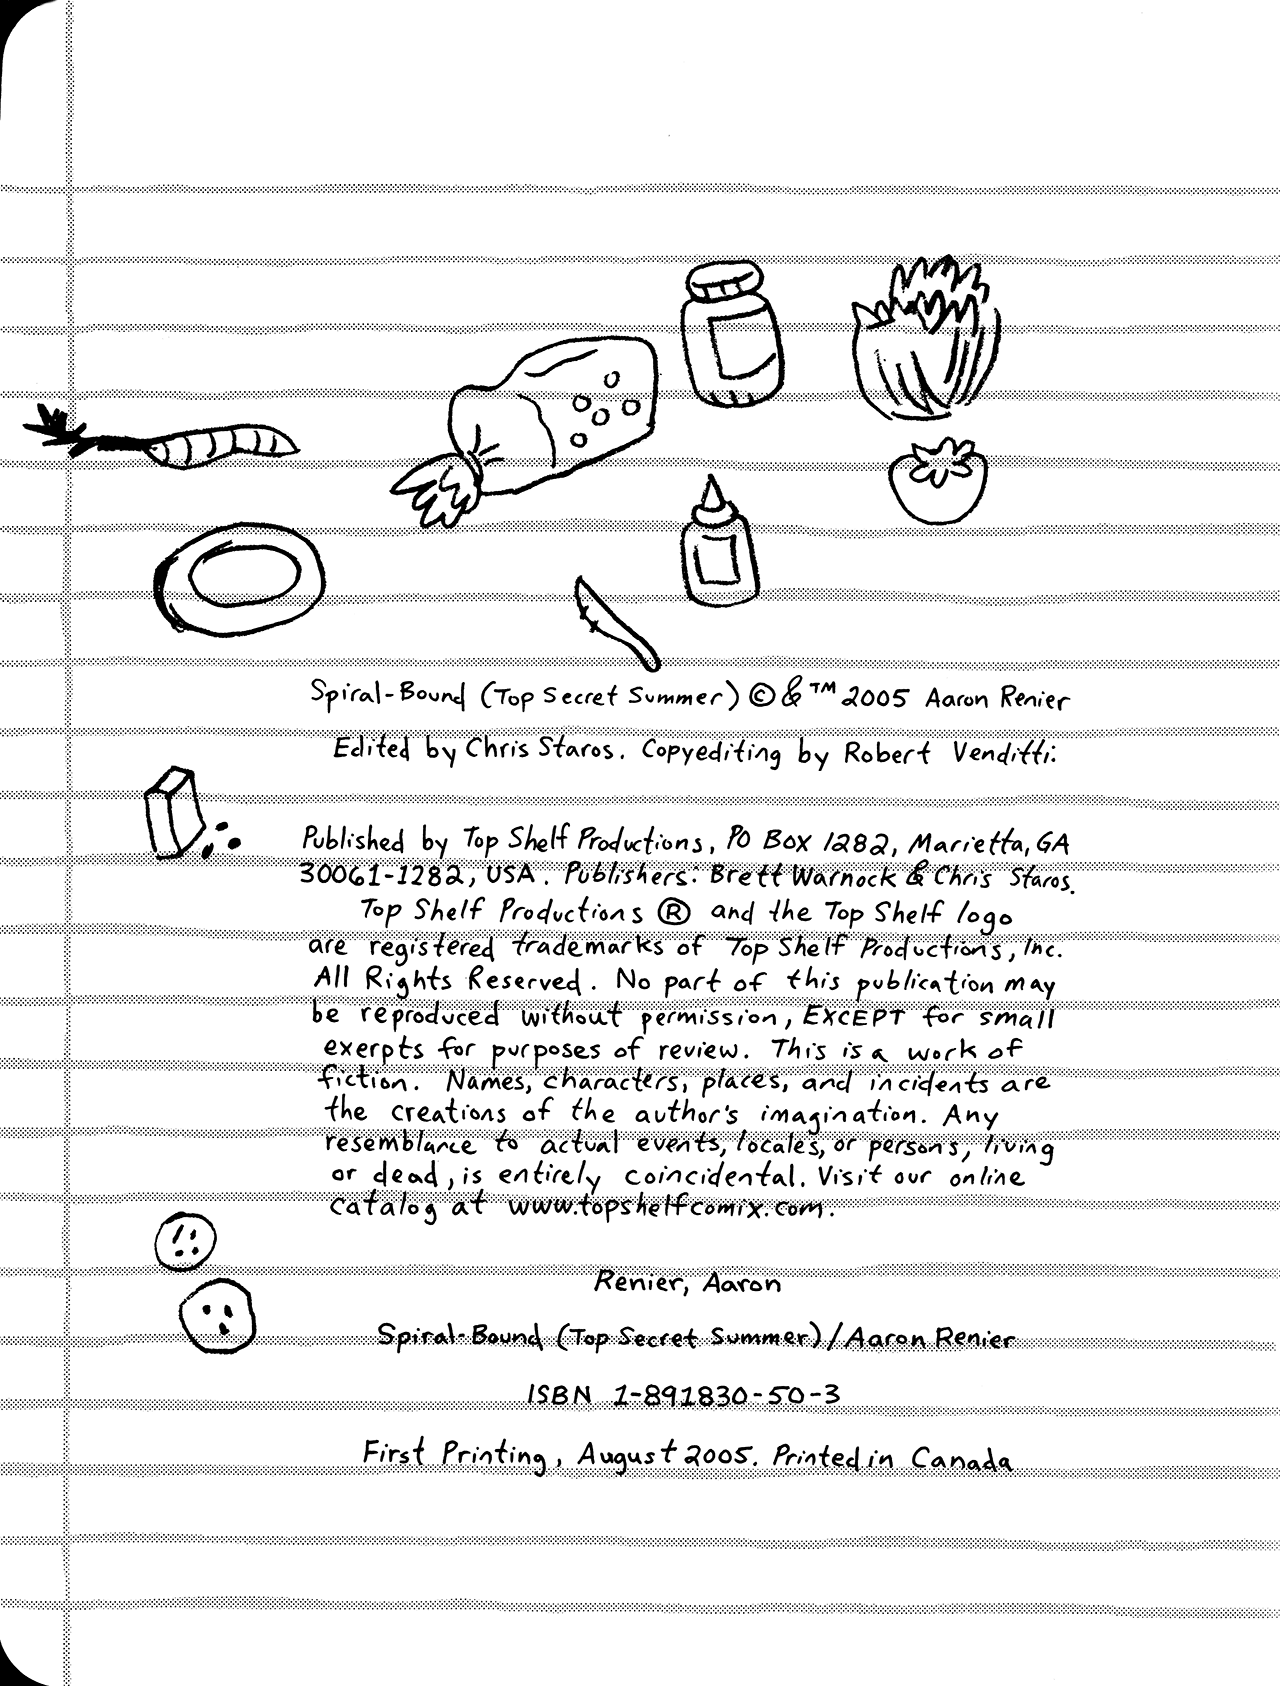 Spiral-Bound (Top Secret Summer) © & ™ 2005 Aaron Renier
Edited by Chris Staros. Copyediting by Robert Venditti.
Published by Top Shelf Productions, PO Box 1282, Marietta, GA
30061-1282, USA. Publishers: Brett Warnock & Chris Staros.
Top Shelf Productions ® and the Top Shelf logo
are registered trademarks of Top Shelf Productions, Inc.
All Rights Reserved. No part of this publication may
be reproduced without permission, EXCEPT for small
exerpts for purposes of review. This is a work of
fiction. Names, characters, places, and incidents are
the creations of the author's imagination. Any
resemblance to actual events, locales, or persons, living
or dead, is entirely coincidental. Visit our online
catalog at www.topshelfcomix.com.
Renier, Aaron
Spiral-Bound (Top Secret Summer)/Aaron Renier
ISBN 1-891830-50-3
First Printing, August 2005. Printed in Canada